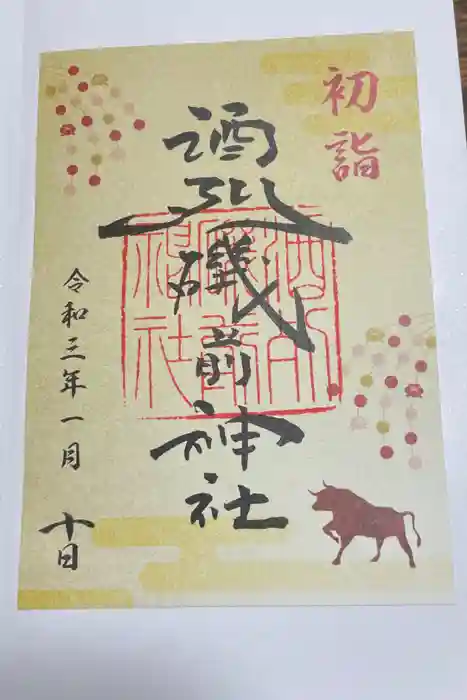 初詣
酒列磯前神社
酒列
磯前
神社
令和三年一月十日